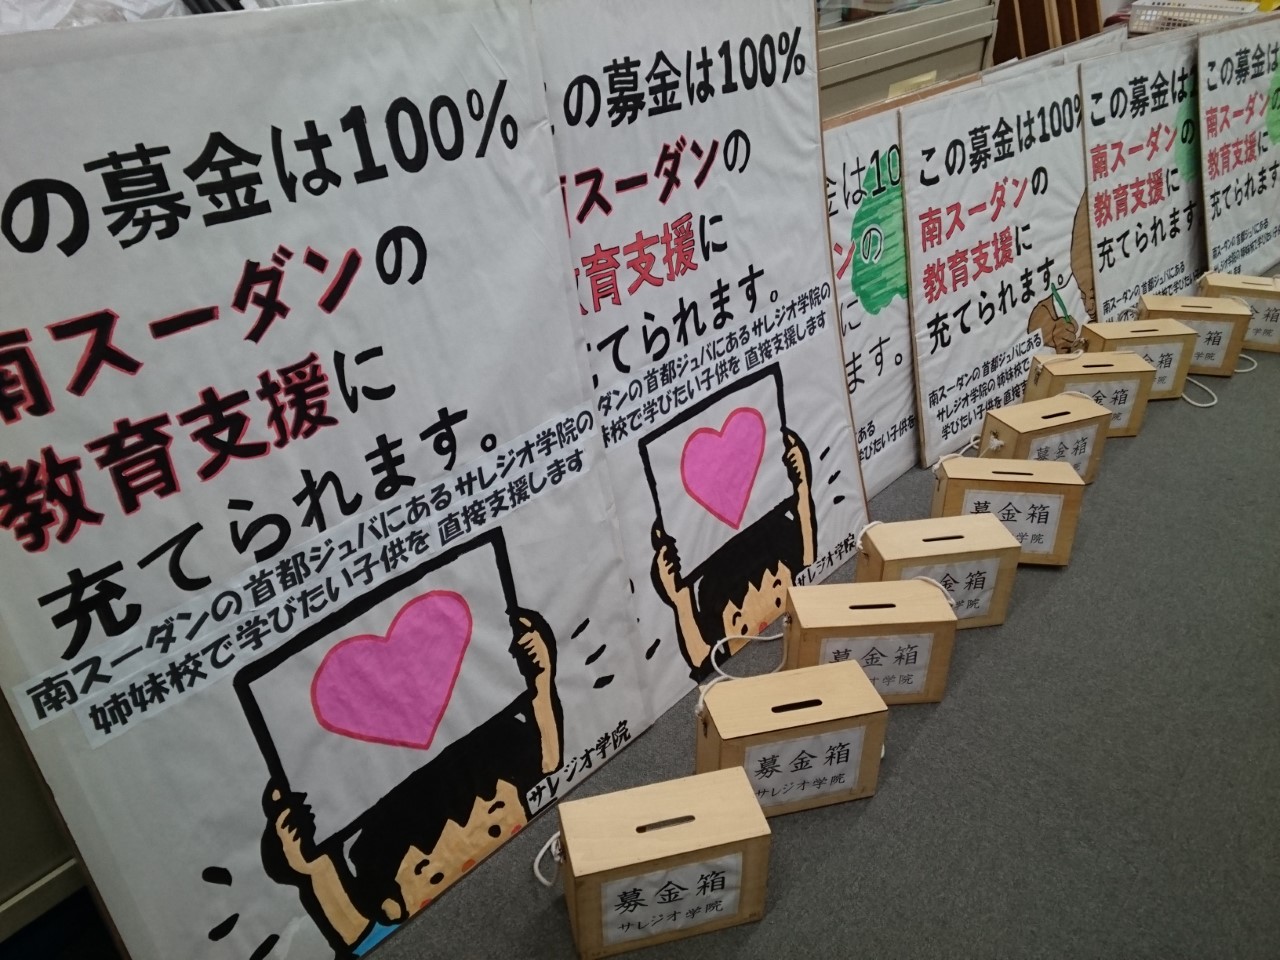 の募金は100%
南スーダンの
教育支援に
充てられます。
南スーダンの首都ジュバにあるサレジオ学院の
姉妹校で学びたい子供を 直接支援します
サレジオ学院
この募金は100%
南スーダンの
教育支援に
てられます。
ダンの首都ジュバにあるサレジオ学院の
校で学びたい子供を 直接支援します
サレジオ学院
は10
ンの
に
ます。
ある
学びたい子供を
この募金は100%
南スーダンの
教育支援に
充てられます。
南スーダンの首都ジュバにある
サレジオ学院の姉妹校で
学びたい子供を直接支
この募金は1
南スーダンの
教育支援に
充てられます
南スーダンの首都ジュバにある
この募金は
南スーダン
教育支援に
充てられます
南スーダンの首都ジュバにある
募金箱
サレジオ学院
募金箱
サレジオ学院
募金箱
学院
金箱
学院
募金箱
学院
募金箱
金箱
箱
箱
学院
箱
学院